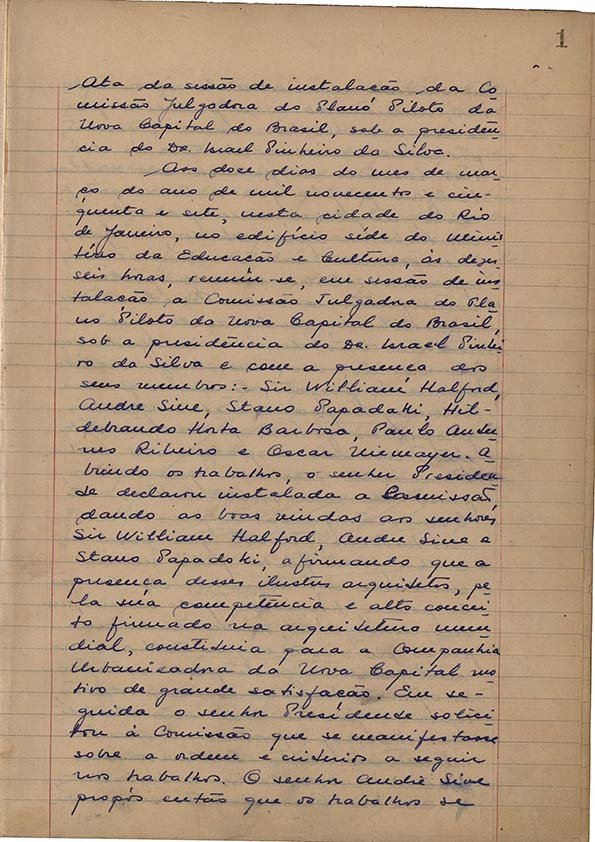 1
Ata da sessão de instalação da Co
missão Julgadora do Plano Piloto da
Nova Capital do Brasil, sob a presidên
cia do Dr. Israel Pinheiro da Silva.
Aos doze dias do mes de mar
ço do ano de mil novecentos e cin-
quenta e sete, nesta cidade do Rio
de Janeiro, no edifício séde do Minis
tério da Educação e Cultura, às dezes
seis horas, reuniu-se, em sessão de ins
talação a Comissão Julgadora do Pla
no Piloto da Nova Capital do Brasil,
sob a presidência do Dr. Israel Pinhei
ro da Silva e com a presença dos
seus membros:- Sir William Halford,
Andre Sive, Stano Papadaki, Hil-
debrando Horta Barbosa, Paulo Antu-
nes Ribeiro e Oscar Niemayer. A
brindo os trabalhos, o senhor Presiden
te declarou instalada a Comissão,
dando as boas vindas aos senhores
Sir William Halford, Andre Sive e
Stano Papadaki, afirmando que a
presença desses ilustres arquitetos, pe
la sua competência e alto concei
to firmado na arquitetura mun
dial, constituia para a Companhia
Urbanizadora da Nova Capital mo
tivo de grande satisfação. Em se-
guida o senhor Presidente solici
tou à Comissão que se manifestasse
sobre a ordem e criterios a seguir
nos trabalhos. O senhor André Sive
propôs então que os trabalhos se